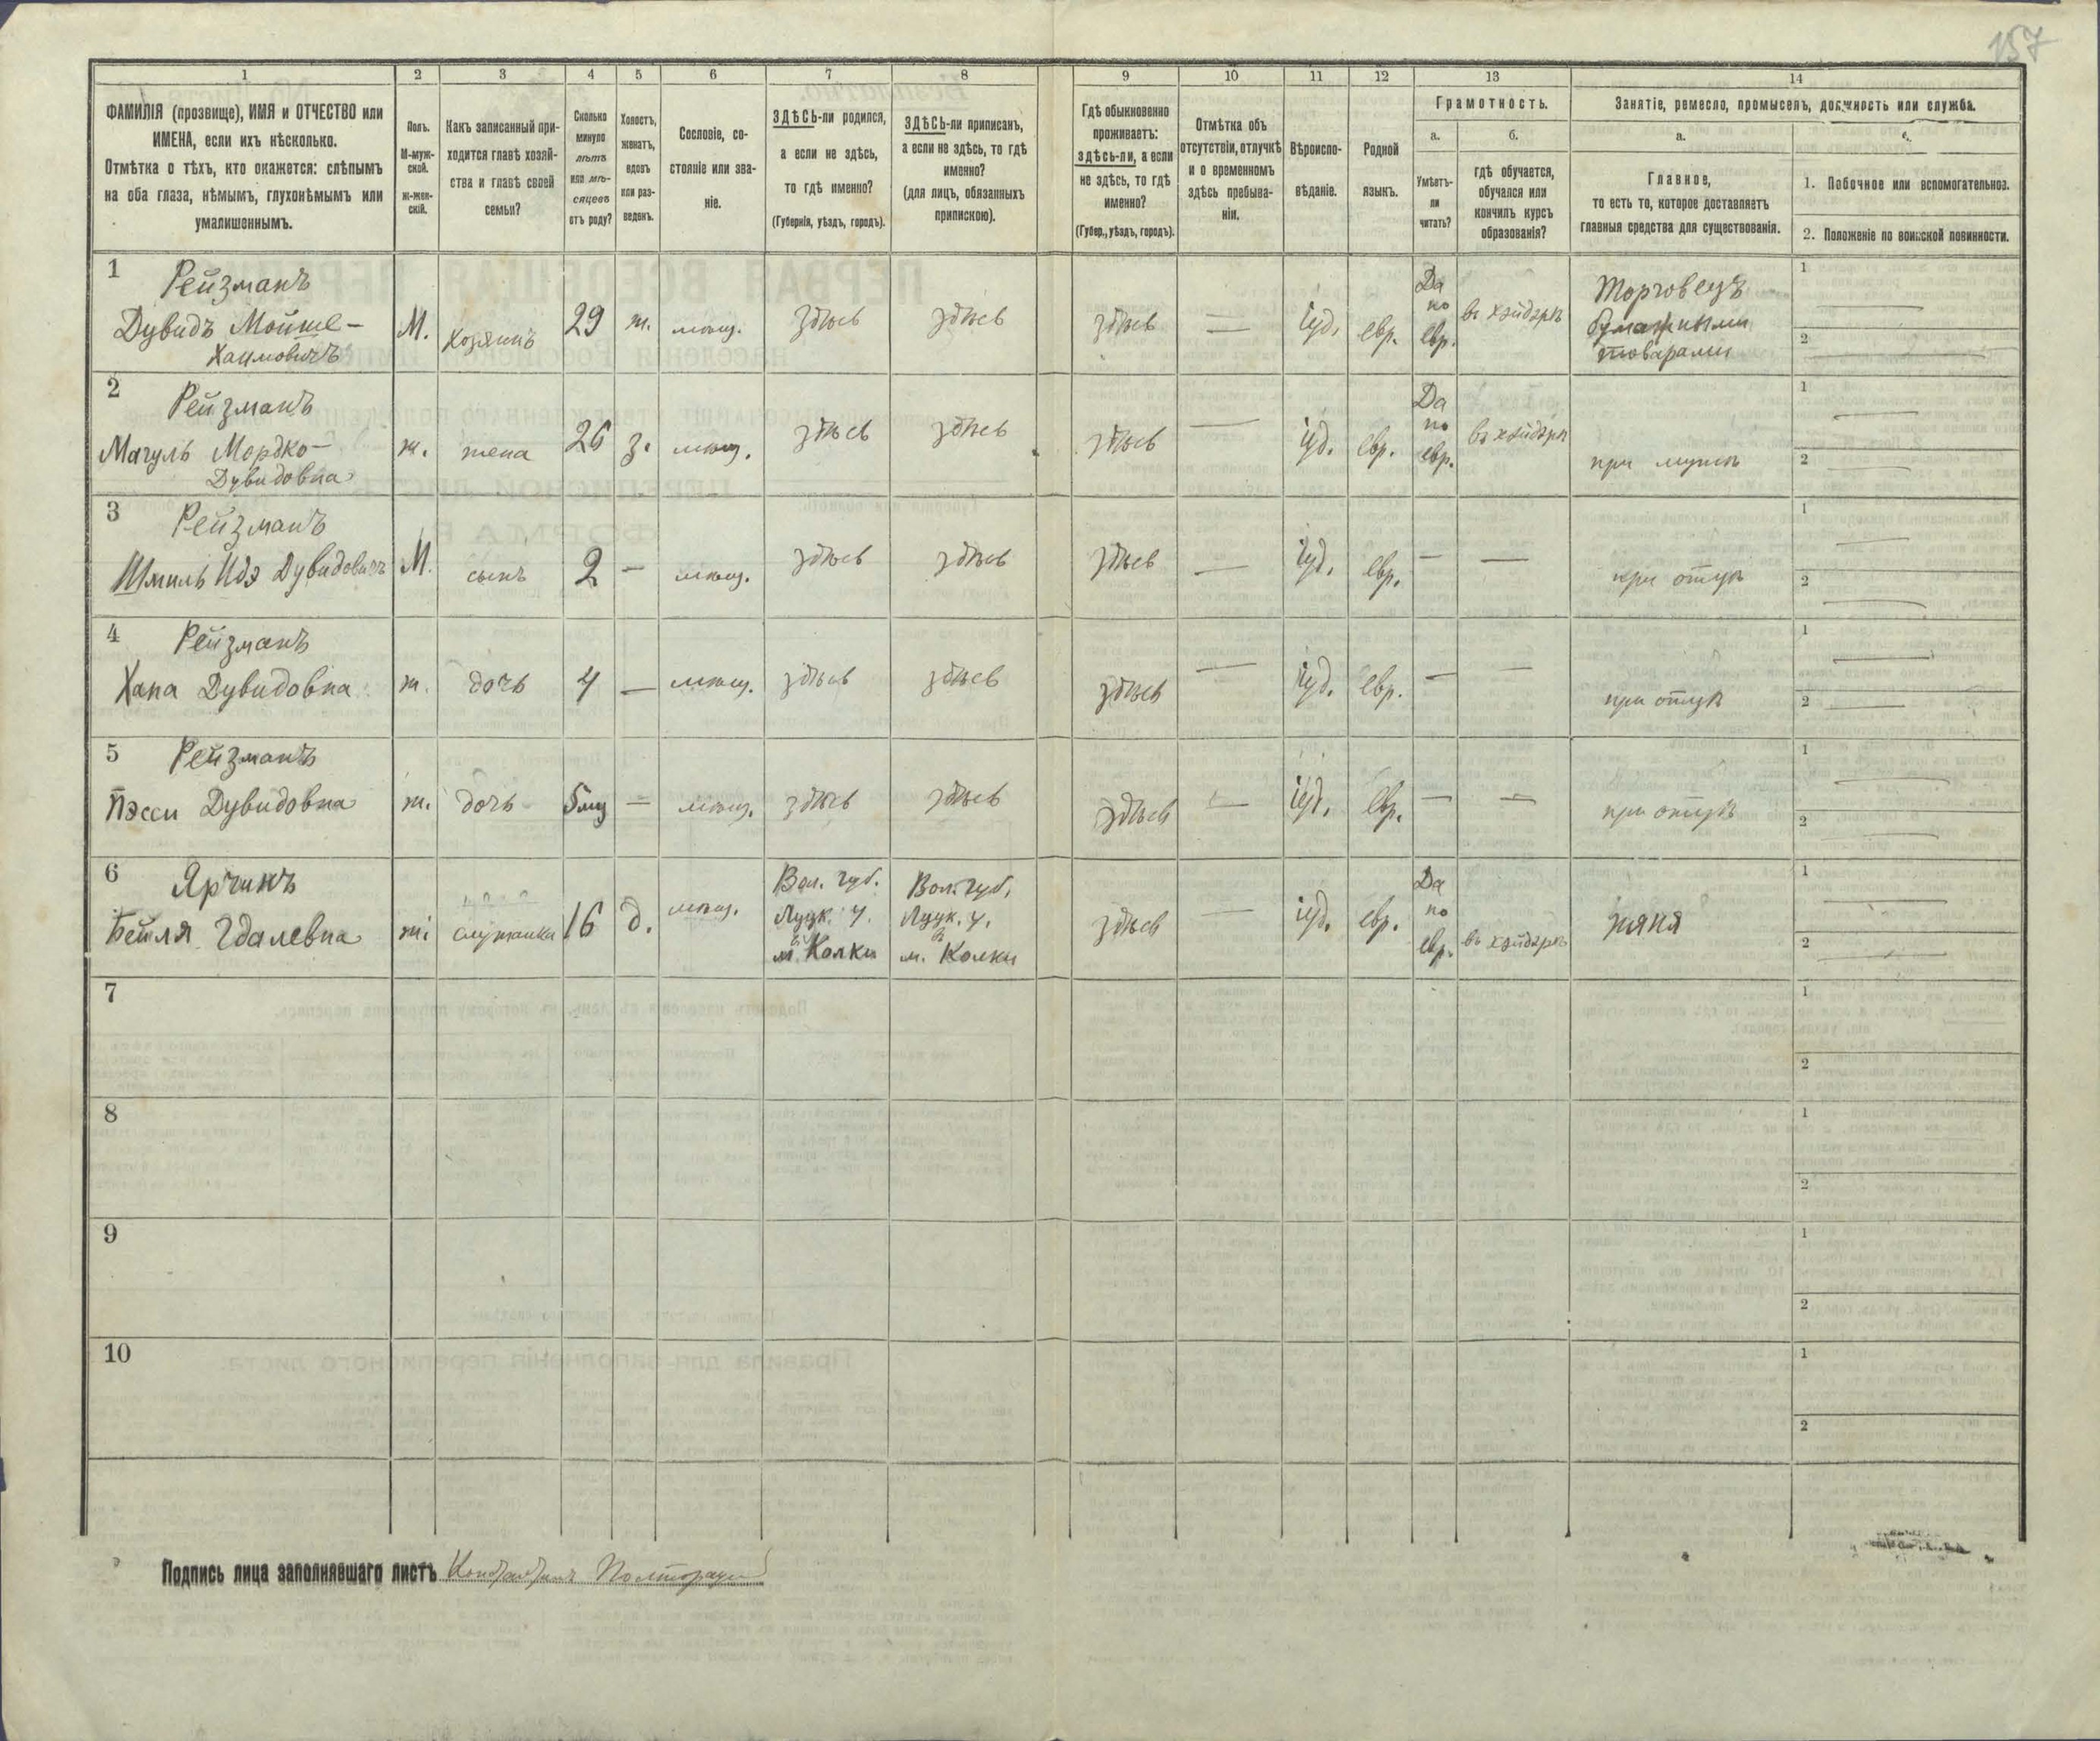 157
1 2 3 4 5 6 7 8 9 10 11 12 13 14
ФАМИЛІЯ (прозвище), ИМЯ и ОТЧЕСТВО или
ИМЕНА, если ихъ нѣсколько.
Отмѣтка о тѣхъ, кто окажется: слѣпымъ
на оба глаза, нѣмымъ, глухонѣмымъ или
умалишеннымъ.
Полъ.
М-муж-
ской.
ж-жен-
скій.
Какъ записанный при-
ходится главѣ хозяй-
ства и главѣ своей
семьи?
Сколько
минуло
лѣтъ
или мѣ-
сяцевъ
отъ роду?
Холостъ,
женатъ,
вдовъ
или раз-
веденъ.
Сословіе, со-
стояніе или зва-
ніе.
ЗДѢСЬ-ли родился,
а если не здѣсь,
то гдѣ именно?
(Губернія, уѣздъ, городъ).
ЗДѢСЬ-ли приписанъ,
а если не здѣсь, то гдѣ
именно?
(для лицъ, обязанныхъ
припискою).
Гдѣ обыкновенно
проживаетъ:
здѣсь-ли, а если
не здѣсь, то гдѣ
именно?
(Губер., уѣздъ, городъ).
Отмѣтка объ
отсутствіи, отлучкѣ
и о временномъ
здѣсь пребыва-
ніи.
Вѣроиспо-
вѣданіе.
Родной
языкъ.
Грамотность.
а.
Умѣетъ-
ли
читать?
б.
гдѣ обучается,
обучался или
кончилъ курсъ
образованія?
Занятіе, ремесло, промыселъ, должность или служба.
а.
Главное,
то есть то, которое доставляетъ
главныя средства для существованія.
1. Побочное или вспомогательное.
2. Положеніе по воинской повинности.
1 Рейзманъ
Дувидъ Мойше-
Хаимовичъ
М. хозяинъ 29 ж. мѣщ. здѣсь здѣсь здѣсь — іуд. евр.
Да
по
евр.
въ хэйдэрѣ
Торговецъ
бумажными
товарами
1 —
2 —
2 Рейзманъ
Магуль Мордко-
Дувидовна
ж. жена 26 з. мѣщ. здѣсь здѣсь здѣсь — іуд. евр.
Да
по
евр.
въ хэйдэрѣ
при мужѣ
1 —
2 —
3 Рейзманъ
Шмиль Идэ Дувидовичъ
М. сынъ 2 — мѣщ. здѣсь здѣсь здѣсь — іуд. евр. — — при отцѣ
1 —
2 —
4 Рейзманъ
Хана Дувидовна
ж. дочь 4 — мѣщ. здѣсь здѣсь здѣсь — іуд. евр. — — при отцѣ
1 —
2 —
5 Рейзманъ
Пэсси Дувидовна
ж. дочь 5 мц — мѣщ. здѣсь здѣсь здѣсь — іуд. евр. — — при отцѣ
1 —
2 —
6 Ярчинъ
Бейля Гдалевна
ж. служанка 16 д. мѣщ.
Вол. губ.
Луцк. у.
м. Колки
Вол. губ.
Луцк. у.
м. Колки
здѣсь — іуд. евр.
Да
по
евр.
въ хэйдэрѣ
няня
1 —
2 —
7
1
2
8
1
2
9
1
2
10
1
2
Подпись лица заполнявшаго листъ Константинъ